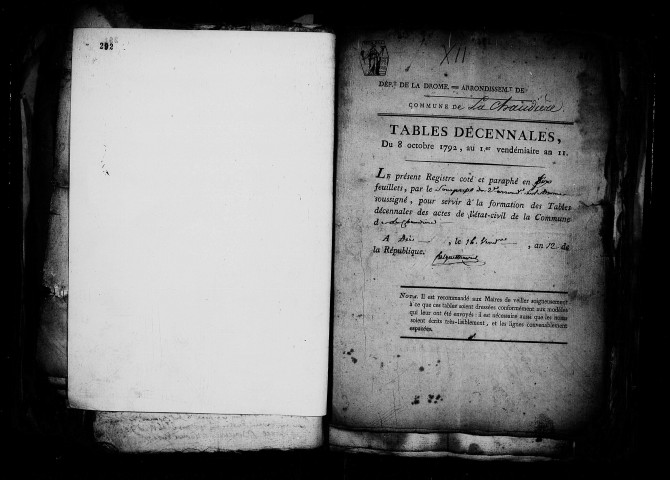 292
XII
DÉP.T DE LA DROME. = ARRONDISSEM.T DE
COMMUNE DE La Chaudiere.
TABLES DÉCENNALES,
Du 8 octobre 1792, au 1.er vendémiaire an 11.
LE présent Registre coté et paraphé en six
feuillets, par le
soussigné, pour servir à la formation des Tables
décennales des actes de l'état-civil de la Commune
d
A Die, le 16 Vend.re, an 12 de
la République.
NOTA. Il est recommandé aux Maires de veiller soigneusement
à ce que ces tables soient dressées conformément aux modèles
qui leur ont été envoyés : il est nécessaire aussi que les noms
soient écrits très-lisiblement, et les lignes convenablement
espacées.